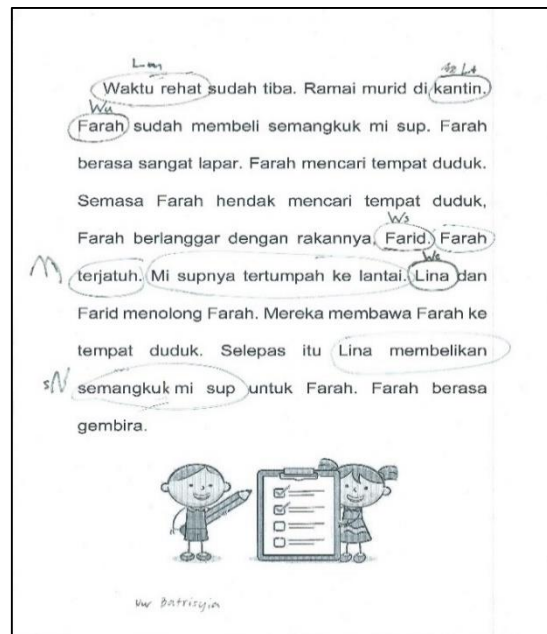 Waktu rehat sudah tiba. Ramai murid di kantin.
Wu
Farah sudah membeli semangkuk mi sup. Farah
berasa sangat lapar. Farah mencari tempat duduk.
Semasa Farah hendak mencari tempat duduk,
Ws
Farah berlanggar dengan rakannya, Farid. Farah
Ws
terjatuh. Mi supnya tertumpah ke lantai. Lina dan
Farid menolong Farah. Mereka membawa Farah ke
tempat duduk. Selepas itu Lina membelikan
semangkuk mi sup untuk Farah. Farah berasa
gembira.
Batrisyia